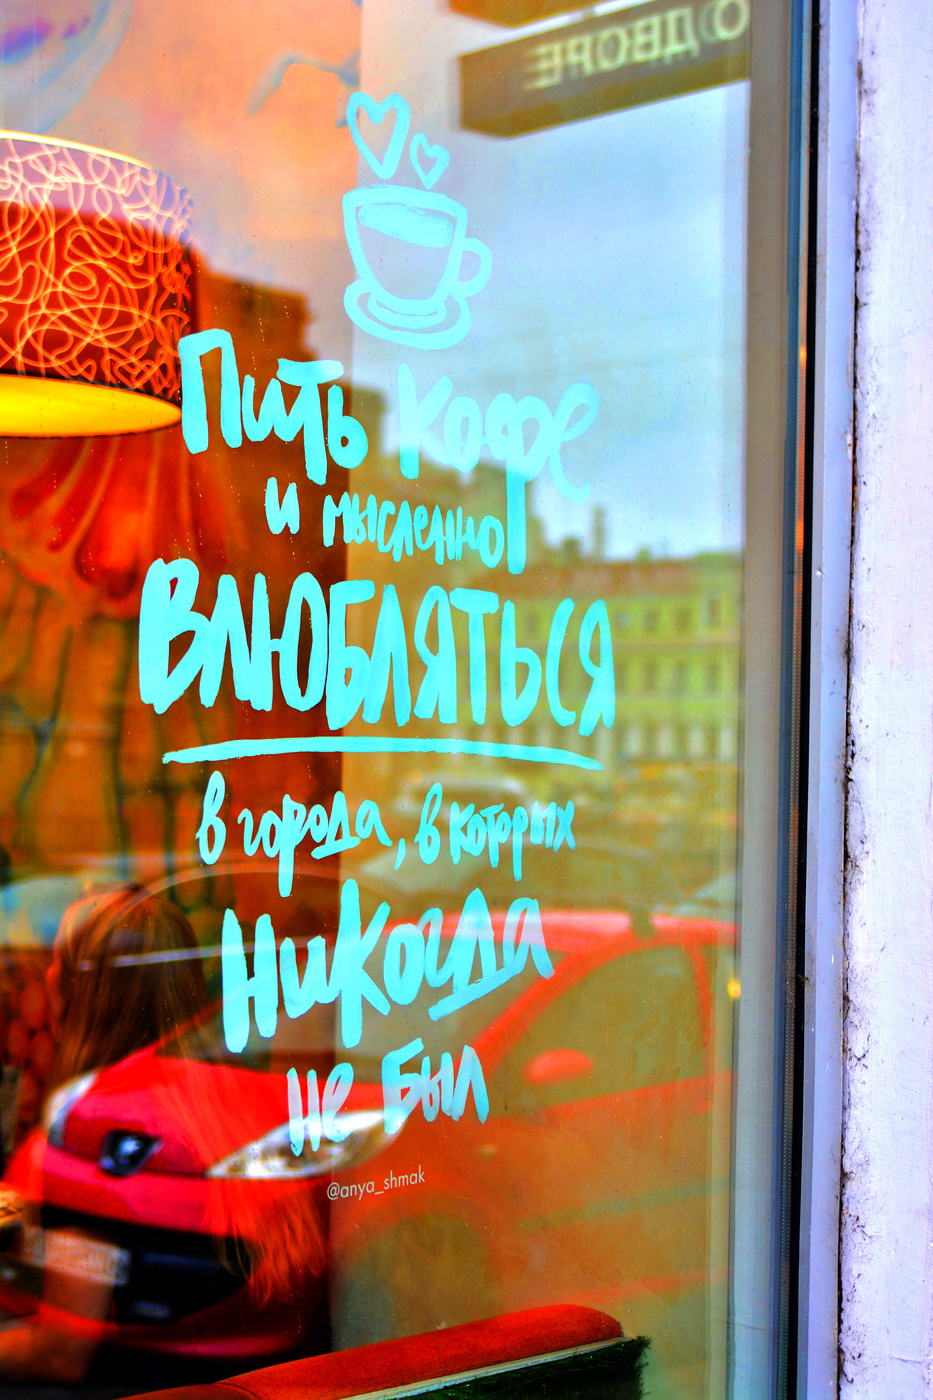 О ДВОРЕ
Пить кофе
и мысленно
Влюбляться
в города, в которых
Никогда
не был
@anya_shmak